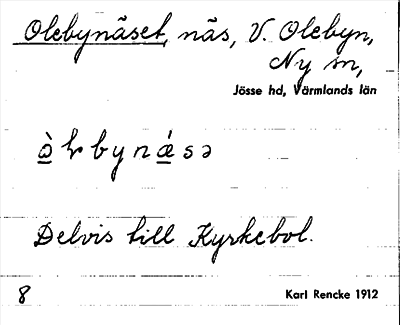 Olebynäset, näs, V. Olebyn,
Ny sn,
Jösse hd, Värmlands län
Delvis till Kyrkebol.
8 Karl Rencke 1912